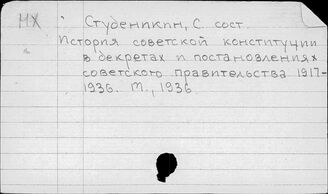 НХ
Студеникин, С. сост.
История советской конституции
в декретах и постановлениях
советского правительства 1917-
1936. М., 1936.